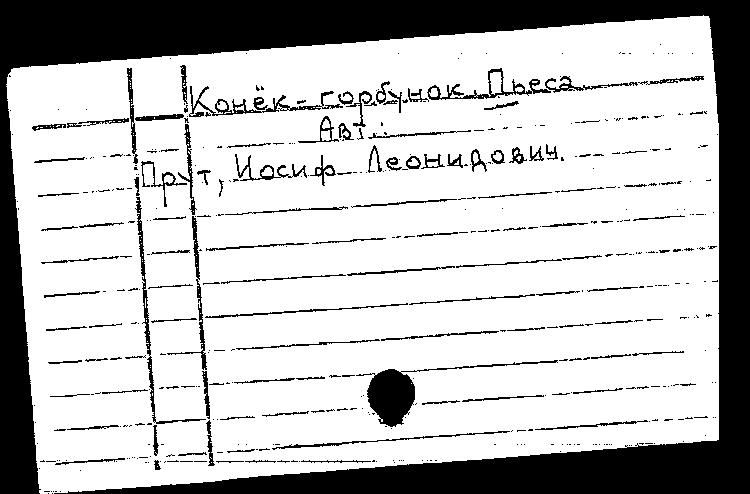 Конёк-горбунок. Пьеса
Авт.:
Прут, Иосиф Леонидович.